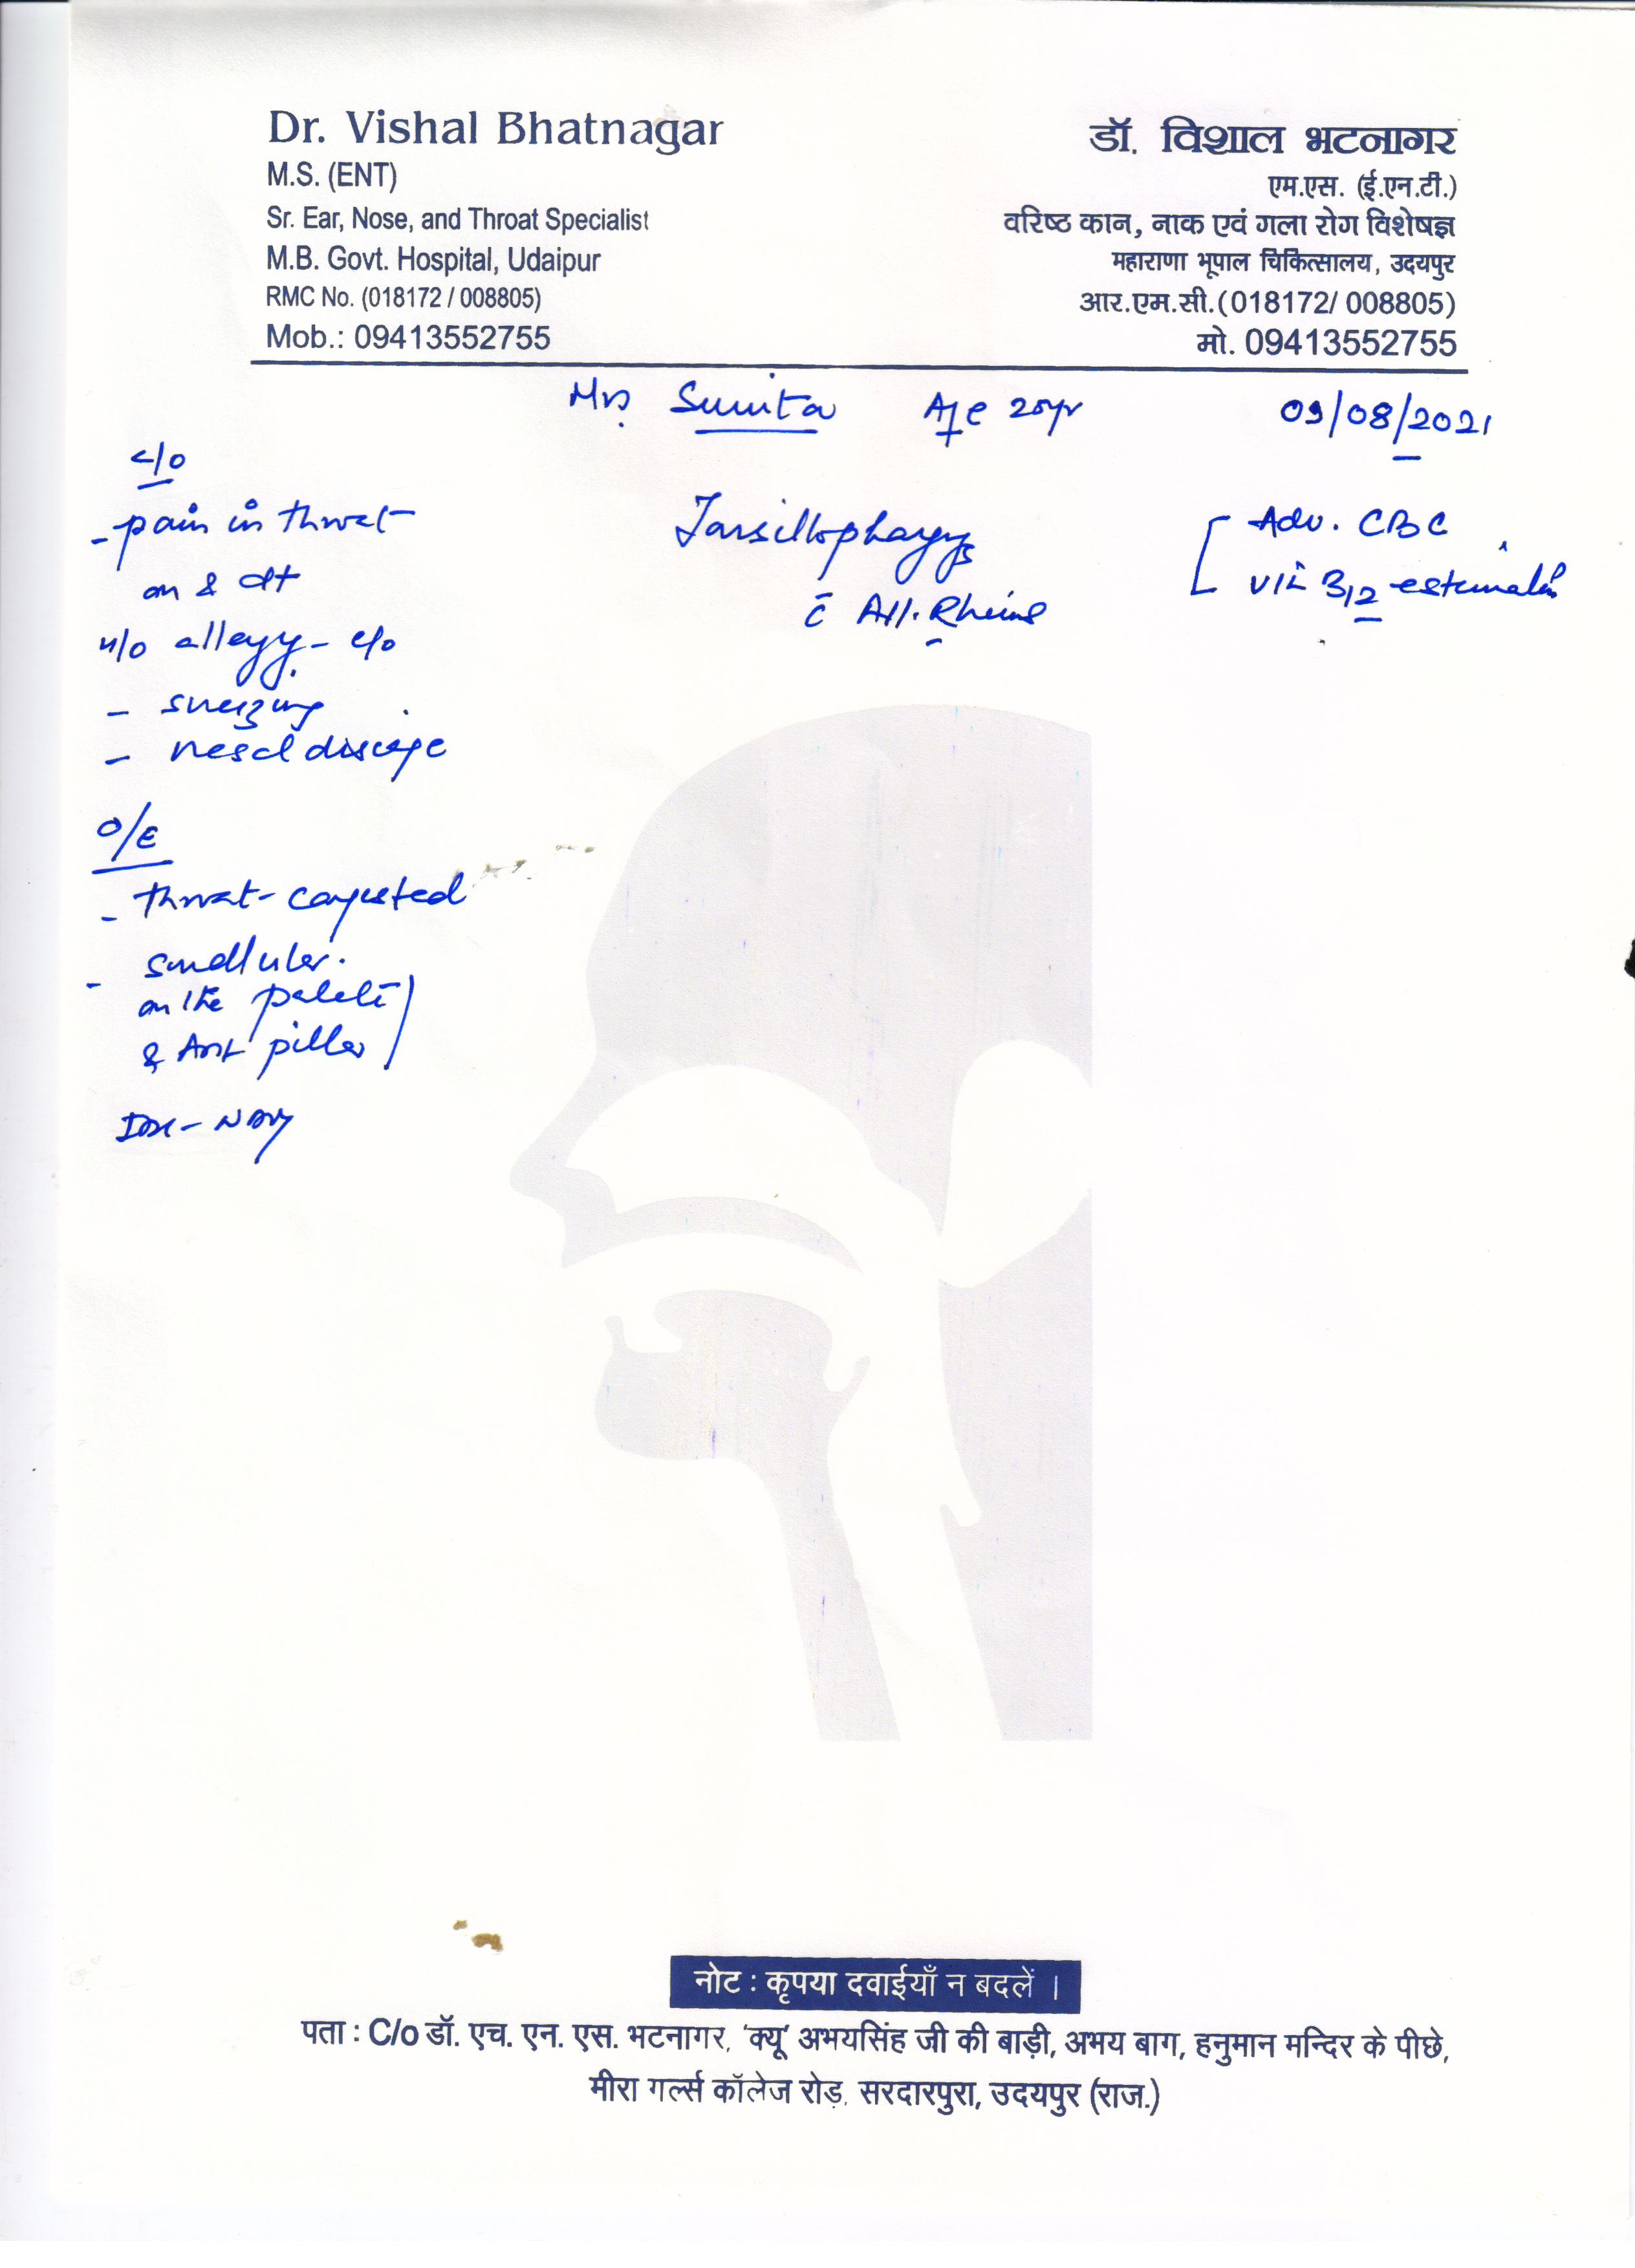 Dr. Vishal Bhatnagar
M.S. (ENT)
Sr. Ear, Nose, and Throat Specialist
M.B. Govt. Hospital, Udaipur
RMC No. (018172 / 008805)
Mob.: 09413552755
डॉ. विशाल भटनागर
एम.एस. (ई.एन.टी.)
वरिष्ठ कान, नाक एवं गला रोग विशेषज्ञ
महाराणा भूपाल चिकित्सालय, उदयपुर
आर.एम.सी.(018172/ 008805)
मो. 09413552755
Mrs Sunita Age 20yr 09/08/2021
c/o
- pain in throat
on & off
H/o allergy - c/o
- sneezing
- nasal discharge
O/E
- Throat - congested
- small ulcer.
on the palate
& Ant pillar
Tonsillopharyngitis
c̄ All. Rhinitis
Adv. CBC
Vit B12 estimation
नोट : कृपया दवाईयाँ न बदलें ।
पता : C/o डॉ. एच. एन. एस. भटनागर, 'क्यू' अभयसिंह जी की बाड़ी, अभय बाग, हनुमान मन्दिर के पीछे,
मीरा गर्ल्स कॉलेज रोड़, सरदारपुरा, उदयपुर (राज.)